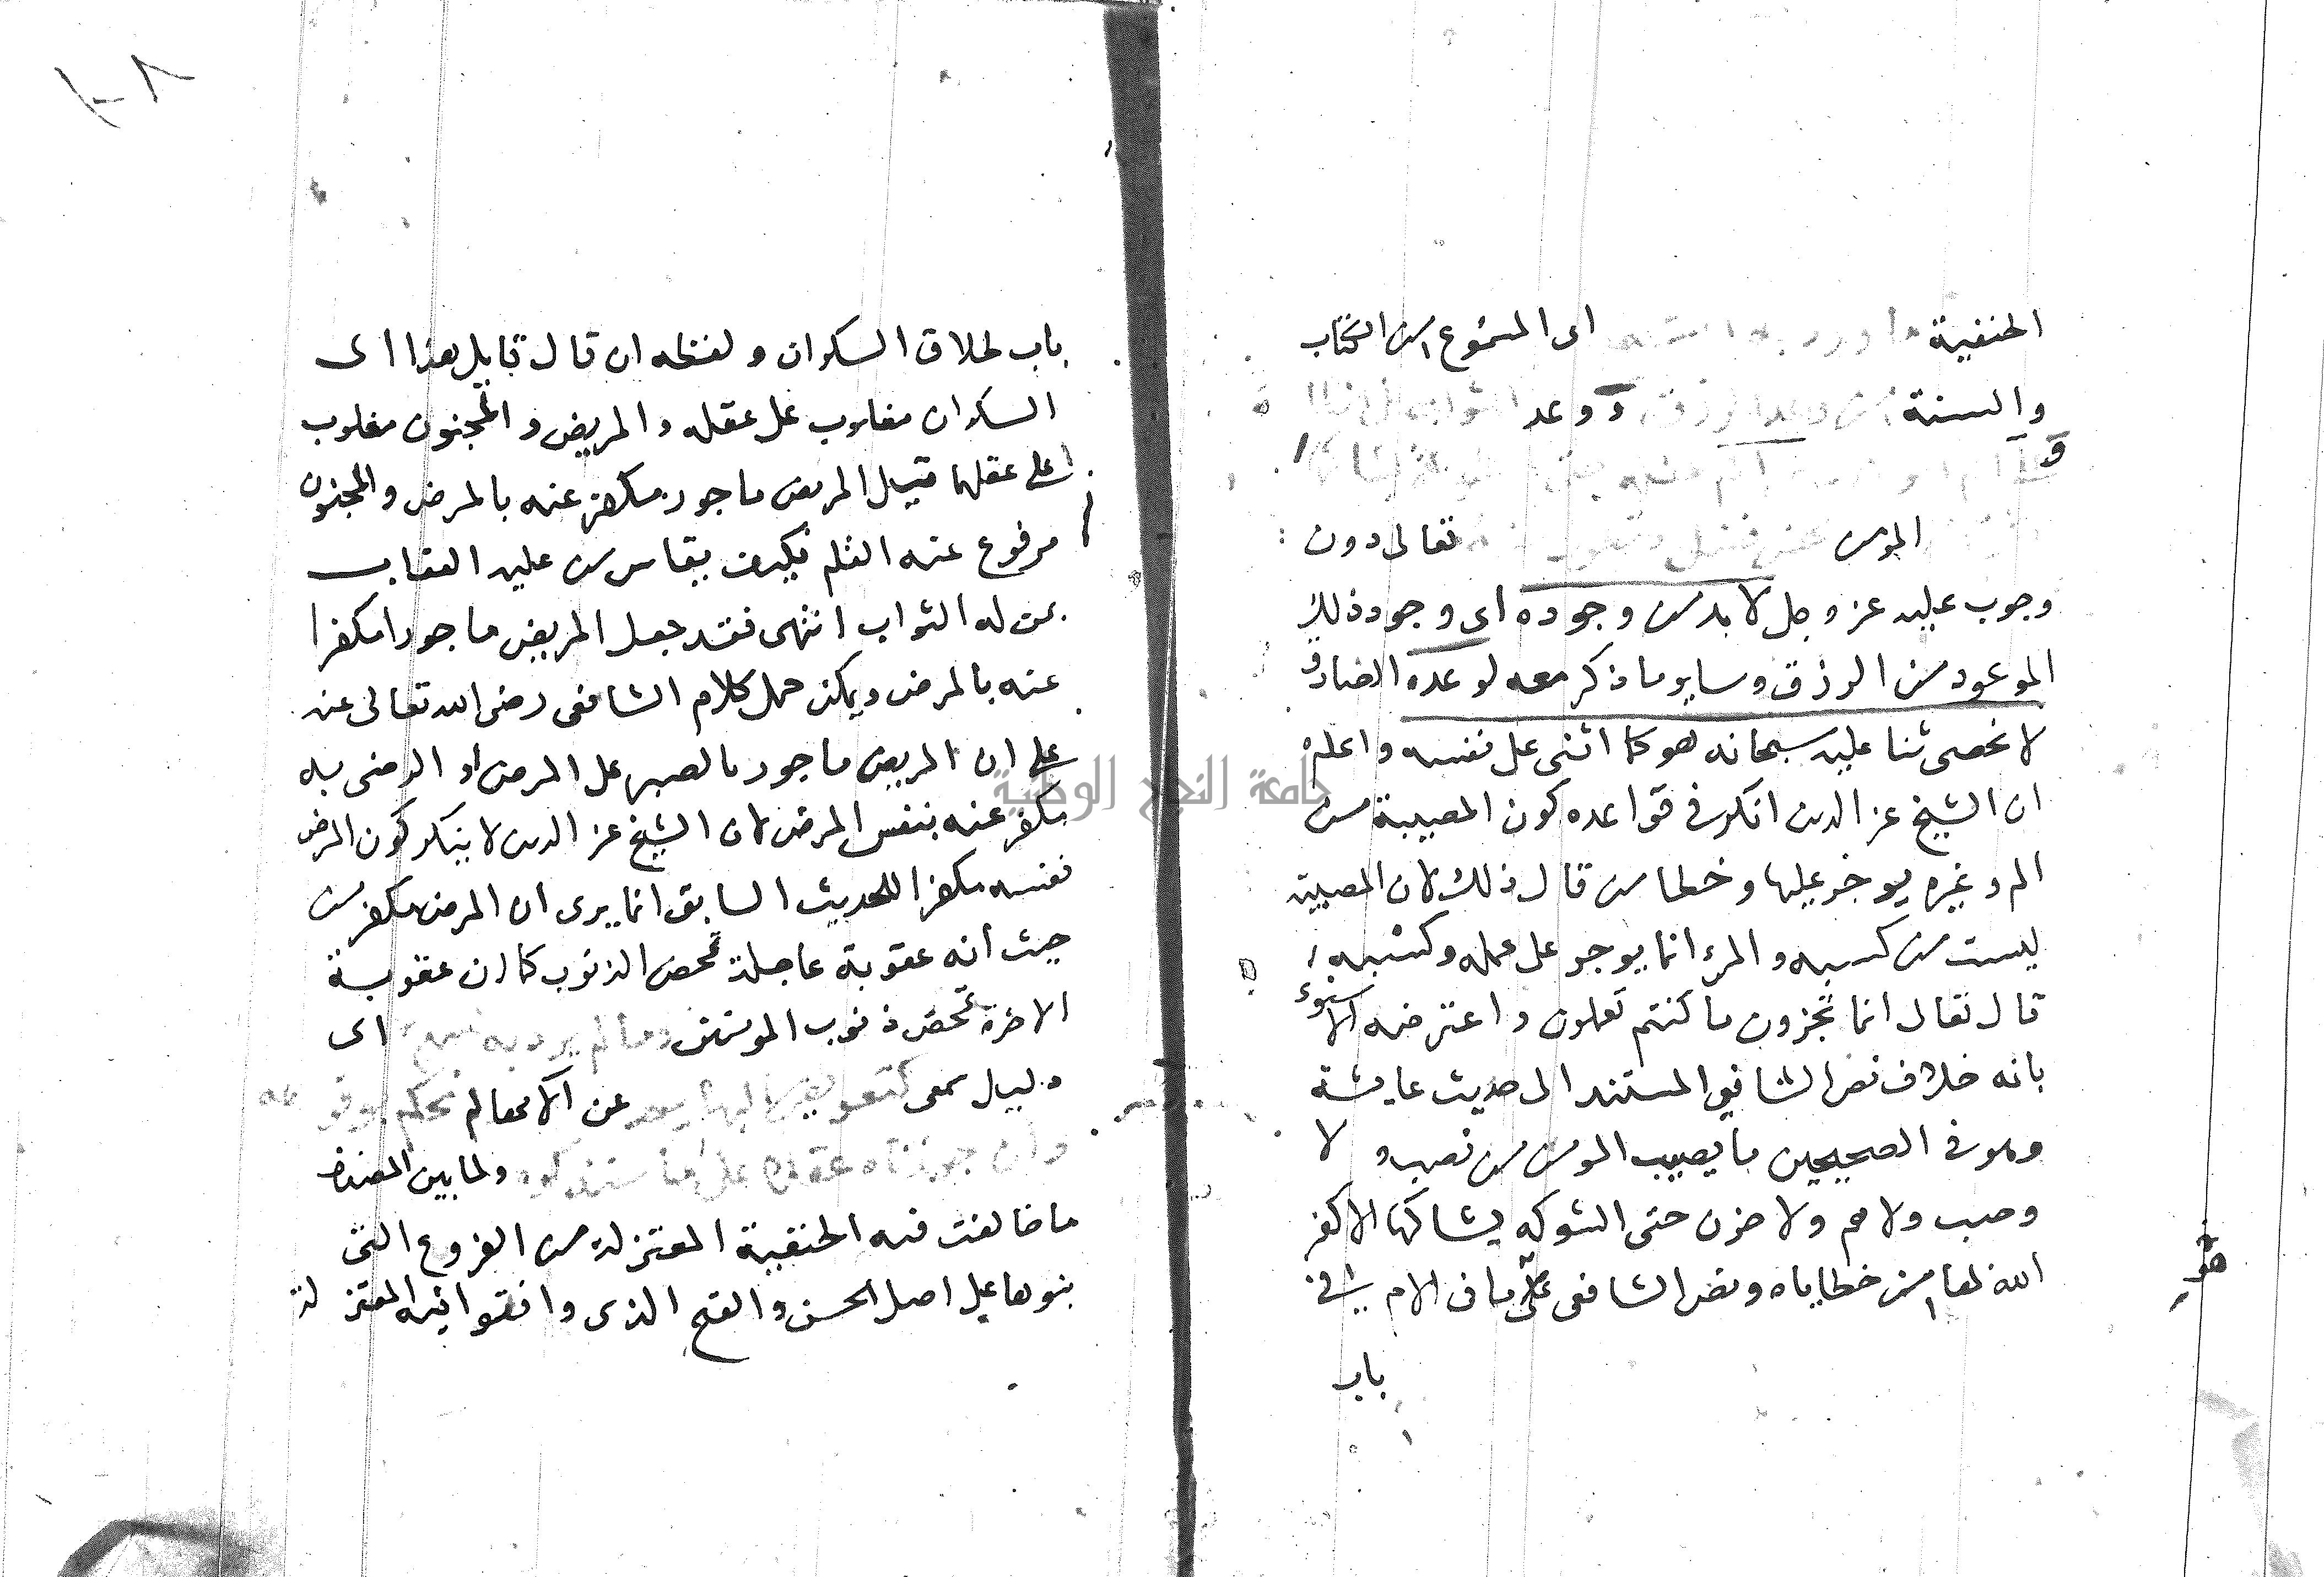 الحنفية اى المسموع من الكتاب
والسنة ووعد
المومن تعالى دون
وجوب عليه عز وجل لا بد من وجوده اى وجود ذلك
الموعود من الرزق وساير ما ذكر معه لوعده الصادق
لا نحصى ثنا عليه سبحانه هو كما اثنى على نفسه واعلم
ان الشيخ عز الدين انكر في قواعده كون المصيبة من
الم وغيره يوجر عليها وخطا من قال ذلك لان المصيبة
ليست من كسبه والمرء انما يوجر على عمله وكسبه
قال تعالى انما تجزون ما كنتم تعملون واعترضه
بانه خلاف نص الشافعى المستند الى حديث عايشة
وهو في الصحيحين ما يصيب المومن من نصب ولا
وصب ولا هم ولا حزن حتى الشوكه يشاكها الا كفر
الله بها من خطاياه ونص الشافعى على ما فى الام في
باب
باب طلاق السكران ولفظه ان قال قايل هذا اى
السكران مغلوب على عقله والمريض والمجنون مغلوب
على عقلهما قيل المريض ماجور مكفر عنه بالمرض والمجنون
مرفوع عنه القلم فكيف يقاس من عليه العقاب
بمن له الثواب انتهى فقد جعل المريض ماجورا مكفرا
عنه بالمرض ويمكن حمل كلام الشافعى رضى الله تعالى عنه
على ان المريض ماجور بالصبر على المرض او الرضى به
مكفر عنه بنفس المرض لان الشيخ عز الدين لا ينكر كون المرض
نفسه مكفرا للحديث السابق انما يرى ان المرض مكفر من
حيث انه عقوبة عاجلة تمحص الذنوب كما ان عقوبة
الاخرة تمحص ذنوب المومنين اى
دليل سمعى عن
ولما بين المصنف
ما خالفت فيه الحنفية المعتزلة من الفروع التى
بنوها على اصل الحسن والقبح الذى وافقوا فيه المعتزلة
جامعة النجاح الوطنية